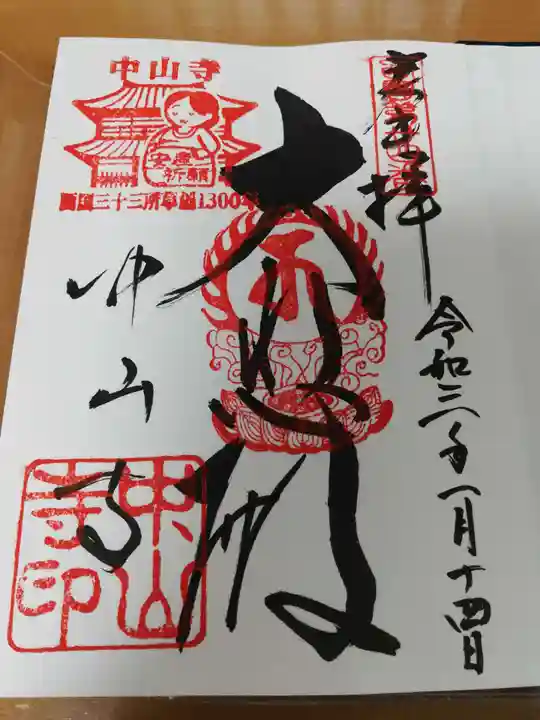 奉拝
令和三年一月十四日
大悲殿
中山寺
中山寺
安産
祈願
西国三十三所草創1300年
中山寺印